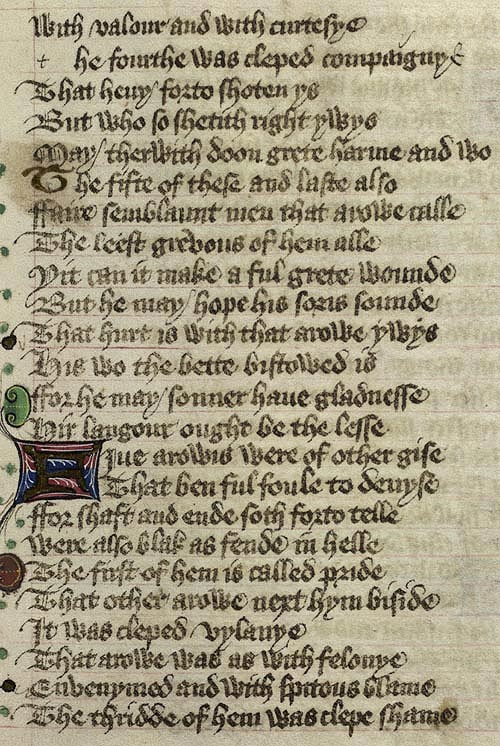 With valour and with curtesye
t he fourthe was cleped compaignye
That heuy forto shoten ys
But who so shetith right ywys
May therwith doon grete harme and wo
The fifte of these and laste also
ffaire semblaunt men that arowe calle
The leest grevous of hem alle
Yit can it make a ful grete wounde
But he may hope his soris sounde
That hurt is with that arowe ywys
His wo the bette bistowed is
ffor he may sonner haue gladnesse
Hir langour ought be the lesse
Fiue arowis were of other gise
That ben ful foule to deuyse
ffor shaft and ende soth forto telle
Were also blak as fende in helle
The first of hem is called pride
That other arowe next hym biside
It was cleped vylanye
That arowe was as with felonye
Envenymed and with spitous blame
The thridde of hem was clepe shame